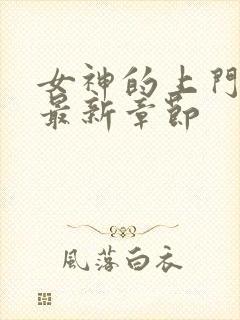 女神的上門
最新章節
風落白衣